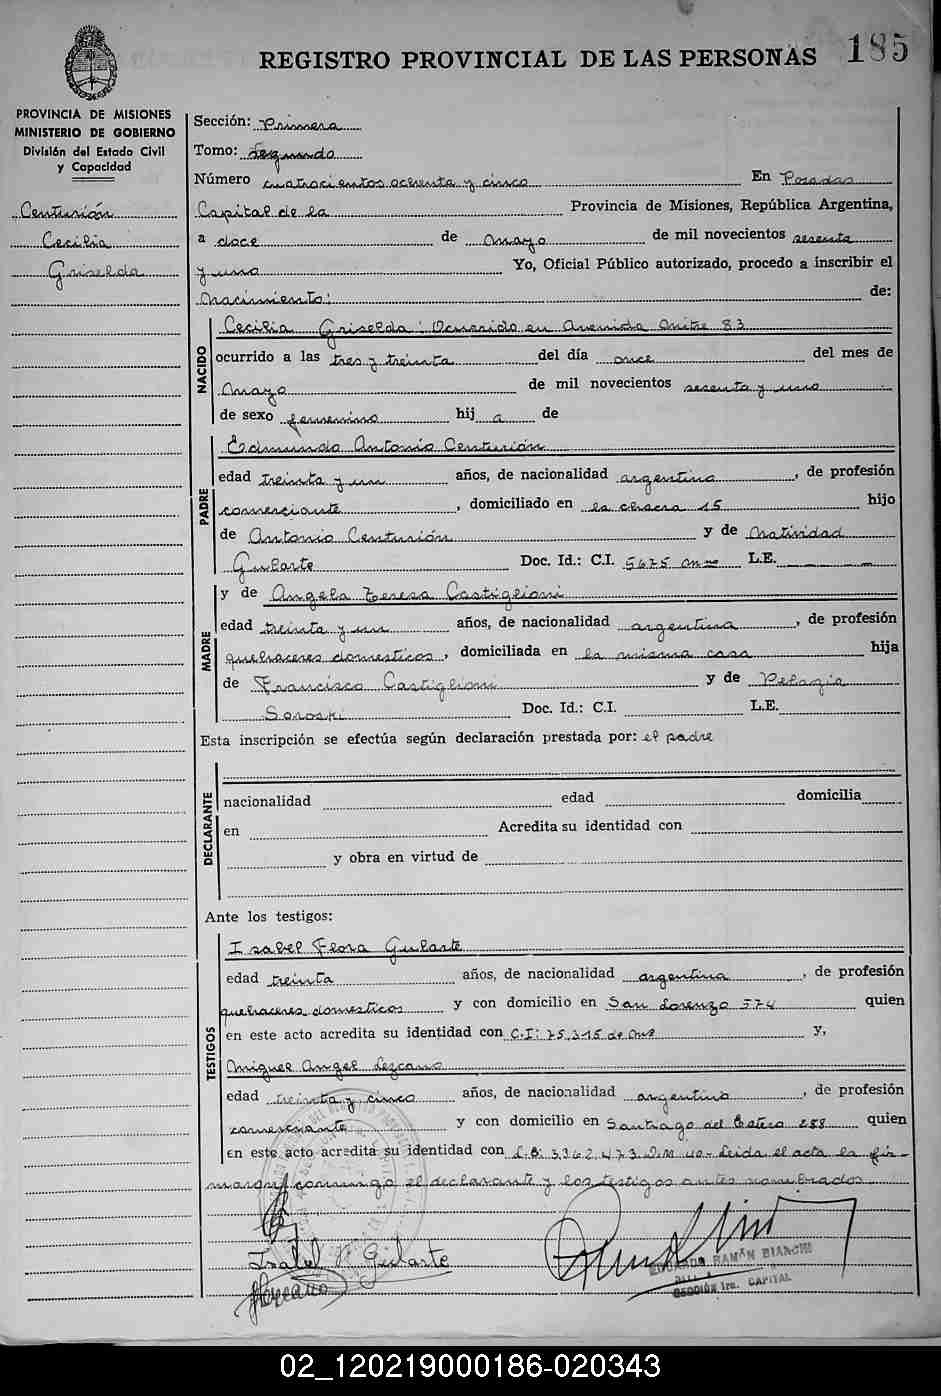 REGISTRO PROVINCIAL DE LAS PERSONAS 185
PROVINCIA DE MISIONES
MINISTERIO DE GOBIERNO
División del Estado Civil
y Capacidad
Centurión
Cecilia
Griselda
Sección: Primera
Tomo: Segundo
Número cuatrocientos ochenta y cinco En Posadas
Capital de la Provincia de Misiones, República Argentina,
a doce de Mayo de mil novecientos sesenta
y uno Yo, Oficial Público autorizado, procedo a inscribir el
Nacimiento: de:
NACIDO
Cecilia Griselda: Ocurrido en Avenida Mitre 83
ocurrido a las tres y treinta del día once del mes de
Mayo de mil novecientos sesenta y uno
de sexo femenino hij a de
PADRE
Edmundo Antonio Centurión
edad treinta y un años, de nacionalidad argentina, de profesión
comerciante, domiciliado en la chacra 15 hijo
de Antonio Centurión y de Natividad
Gularte Doc. Id.: C.I. 5675 Mnes L.E.
MADRE
y de Angela Teresa Castiglioni
edad treinta y un años, de nacionalidad argentina, de profesión
quehaceres domesticos, domiciliada en la misma casa hija
de Francisco Castiglioni y de Pelagia
Soroski Doc. Id.: C.I. L.E.
Esta inscripción se efectúa según declaración prestada por: el padre
DECLARANTE
nacionalidad edad domicilia
en Acredita su identidad con
y obra en virtud de
Ante los testigos:
TESTIGOS
Isabel Flora Gularte
edad treinta años, de nacionalidad argentina, de profesión
quehaceres domesticos y con domicilio en San Lorenzo 574 quien
en este acto acredita su identidad con C.I: 75.315 de Mns y,
Miguel Angel Lezcano
edad treinta y cinco años, de nacionalidad argentino, de profesión
comerciante y con domicilio en Santiago del Estero 288 quien
en este acto acredita su identidad con L.E: 3362.473 D.M 40- Leida el acta la fir-
man conmigo el declarante y los testigos antes nombrados.
Isabel F Gularte
Lezcano
EDUARDO RAMÓN BIANCHI
SECCIÓN 1ra. CAPITAL
02_120219000186-020343